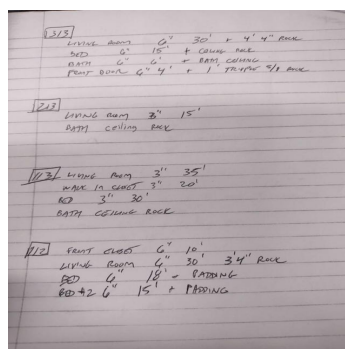 313
LIVING ROOM 6" 30' + 4' 4" ROCK
BED 6" 15' + CEILING ROCK
BATH 6" 6' + BATH CEILING
FRONT DOOR 6" 4' + 1' 5/8 ROCK
213
LIVING ROOM 3" 15'
BATH CEILING ROCK
113
LIVING ROOM 3" 35'
WALK IN CLOSET 3" 20'
BED 3" 30'
BATH CEILING ROCK
112
FRONT CLOSET 6" 10'
LIVING ROOM 6" 30' 3'4" ROCK
BED 6" 18' + PADDING
BED #2 6" 15' + PADDING